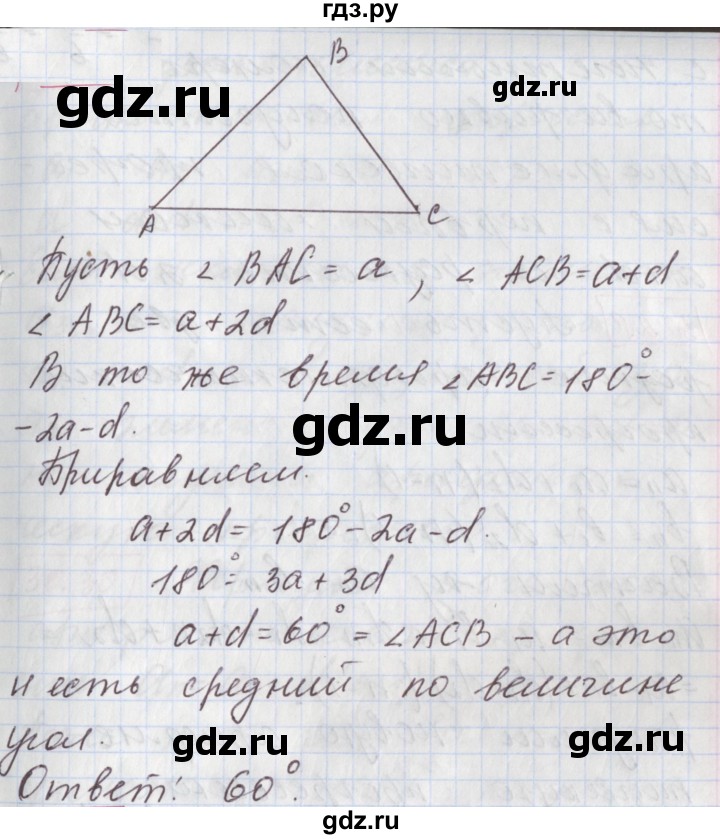 гдз.ру
B
gdz.ru
A
C
Пусть ∠ BAC = a, ∠ ACB = a+d
∠ ABC = a+2d
В то же время ∠ABC = 180° -
gdz.ru
-2a-d.
Приравняем.
a+2d = 180° - 2a - d.
180° = 3a + 3d
a+d = 60° = ∠ACB - а это
и есть средний по величине
угол.
gdz.ru
gdz.ru
Ответ: 60°.